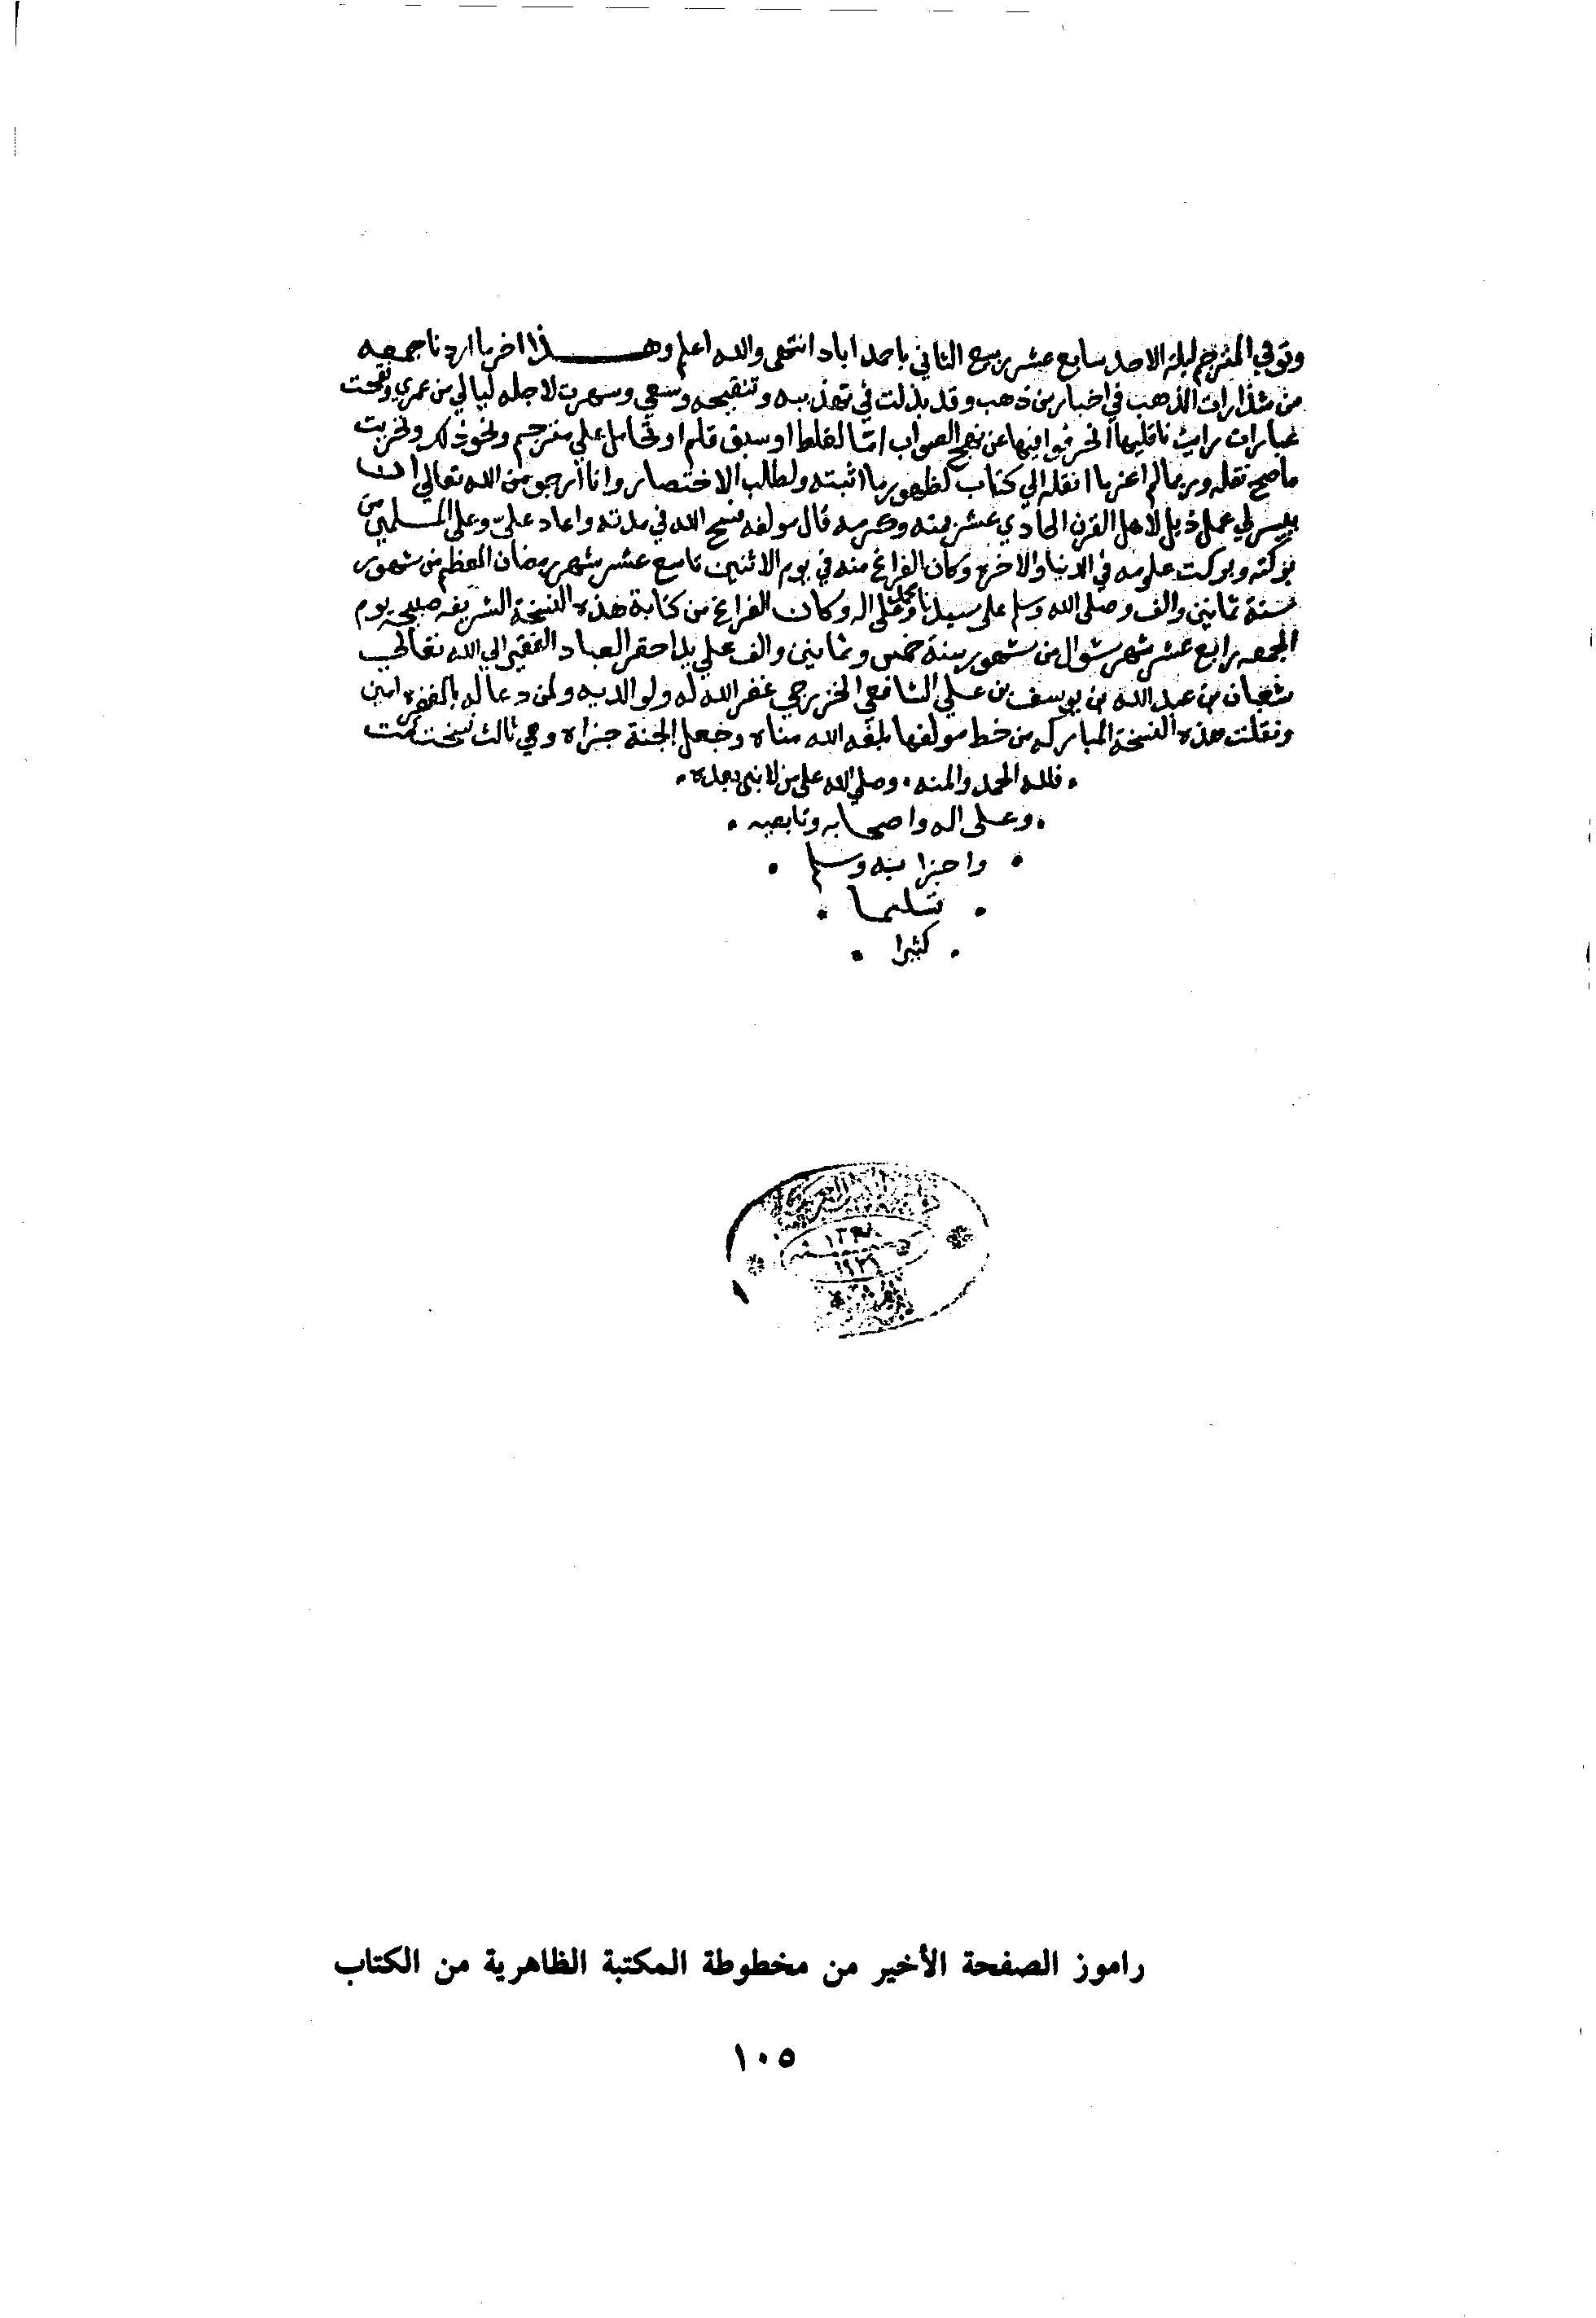 وتوفي المترجم ليلة الاحد سابع عشر ربيع الثاني باحمد اباد انتهى والله اعلم وهـــذا اخر ما اردنا جمعه
من شذارات الذهب في اخبار من ذهب وقد بذلت في تهذيبه وتنقيحه وسعي وسهرت لاجله ليالي من عمري ونقحت
عبارات رايت ناقليها انحرفوا فيها عن نهج الصواب اما لغلط او سبق قلم او تحامل علي مترجم ونحو ذلك وتحريت
ما صح نقله وربما لم اعز ما انقله الي كتاب لظهور ما اثبته ولطلب الاختصار وانا ارجو من الله تعالي ان
ييسر لي عمل ذيل لاهل القرن الحادي عشر بمنه وكرمه قال مولفه فسح الله في مدته واعاد عليّ وعلي المسلمين من
بركته وبركت علومه في الدنيا والاخرة وكان الفراغ منه في يوم الاثنين تاسع عشر شهر رمضان المعظم من شهور
سنة ثمانين والف وصلى الله وسلم على سيدنا محمد وعلى اله وكان الفراغ من كتابة هذه النسخة الشريفه صبيحة يوم
الجمعه رابع عشر شهر شوال من شهور سنة خمس وثمانين والف علي يد احقر العباد الفقير الي الله تعالي
شعبان بن عبد الله بن يوسف بن علي الشافعي الخزرجي غفر الله له ولوالديه ولمن دعا له بالمغفره امين
ونقلت هذه النسخة المباركه من خط مولفها بلغه الله مناه وجعل الجنة جزاه وهي ثالث نسخت تمت
فلله الحمد والمنه وصلي الله على من لا نبي بعده
وعلى اله واصحابه وتابعيه
واحزابه وسلم
تسليما
كثيرا
راموز الصفحة الأخير من مخطوطة المكتبة الظاهرية من الكتاب
١٠٥